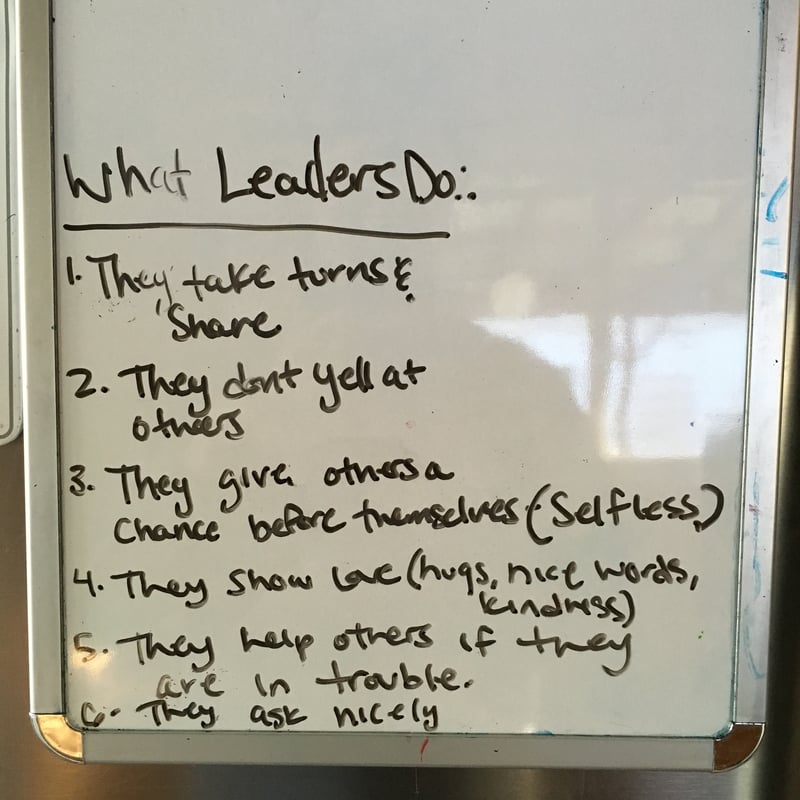 What Leaders Do:.
1. They take turns &
Share
2. They dont yell at
others
3. They give others a
Chance before themselves (Selfless)
4. They show love (hugs, nice words,
kindness)
5. They help others if they
are in trouble.
6. They ask nicely